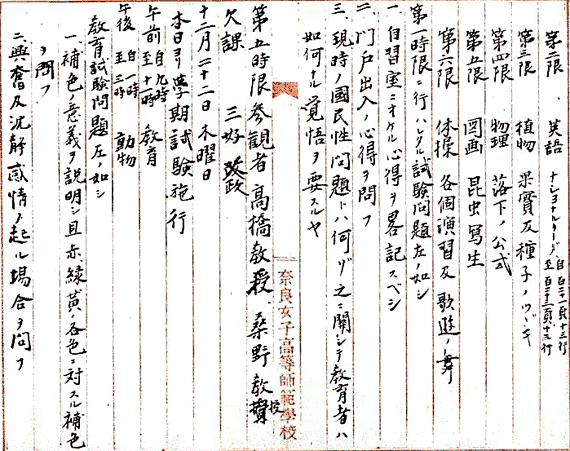 第二限、英語 ナショナルリーダ、自百二十一頁十三行 至百二十三頁十三行
第三限 植物 果實及種子ノツヾキ
第四限 物理 落下ノ公式
第五限 図画 昆虫写生
第六限 体操 各個演習及歌遊ノ舞
第一時限ニ行ハレタル試験問題左ノ如シ
一、自習室ニオケル心得ヲ畧記スベシ
二、門戸出入ノ心得ヲ問フ
三、現時ノ國民性問題トハ何ゾ之ニ關シテ教育者ハ
如何ナル覚悟ヲ要スルヤ
奈良女子高等師範學校
第五時限参観者 髙橋教授、桑野教授
欠課 三好 政
十二月二十二日 木曜日
本日ヨリ學期試験施行
午前 自九時 至十一時 教育
午後 自一時 至三時 動物
教育試験問題左ノ如シ
一、補色ノ意義ヲ説明シ且赤、緑、黄ノ各色ニ対スル補色
ヲ問フ
二、興奮及沈静感情ノ起ル場合ヲ問フ